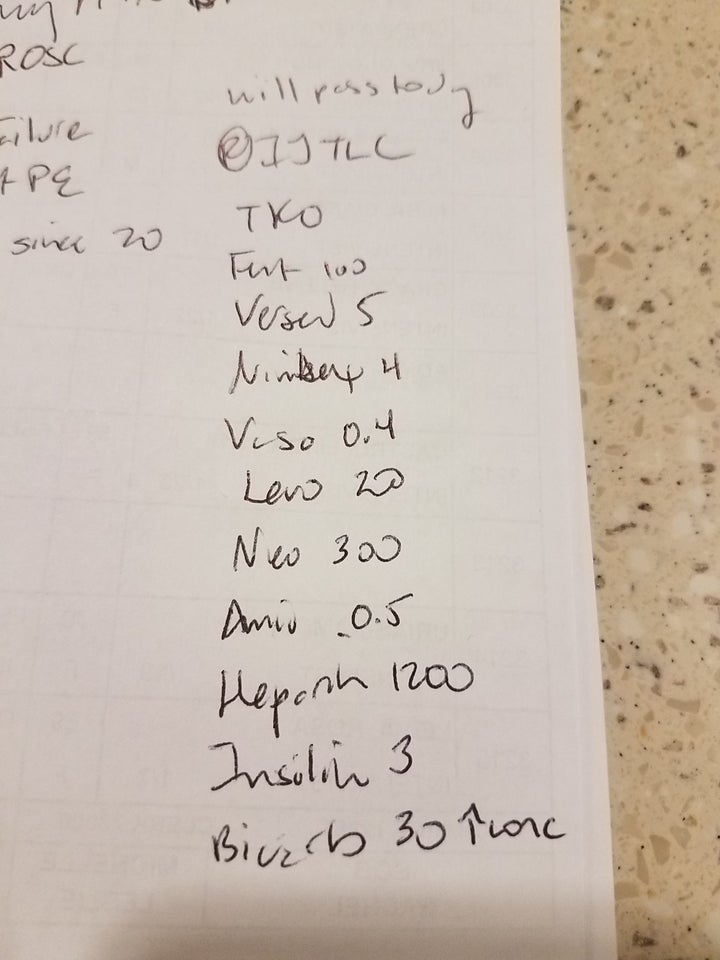 ROSC
will pass today
Ⓡ IJ TLC
failure
PE
TKO
since 20
Fent 100
Versed 5
Nimbex 4
Vaso 0.4
Levo 20
Neo 300
Amio 0.5
Heparin 1200
Insulin 3
Bicarb 30 ↑conc